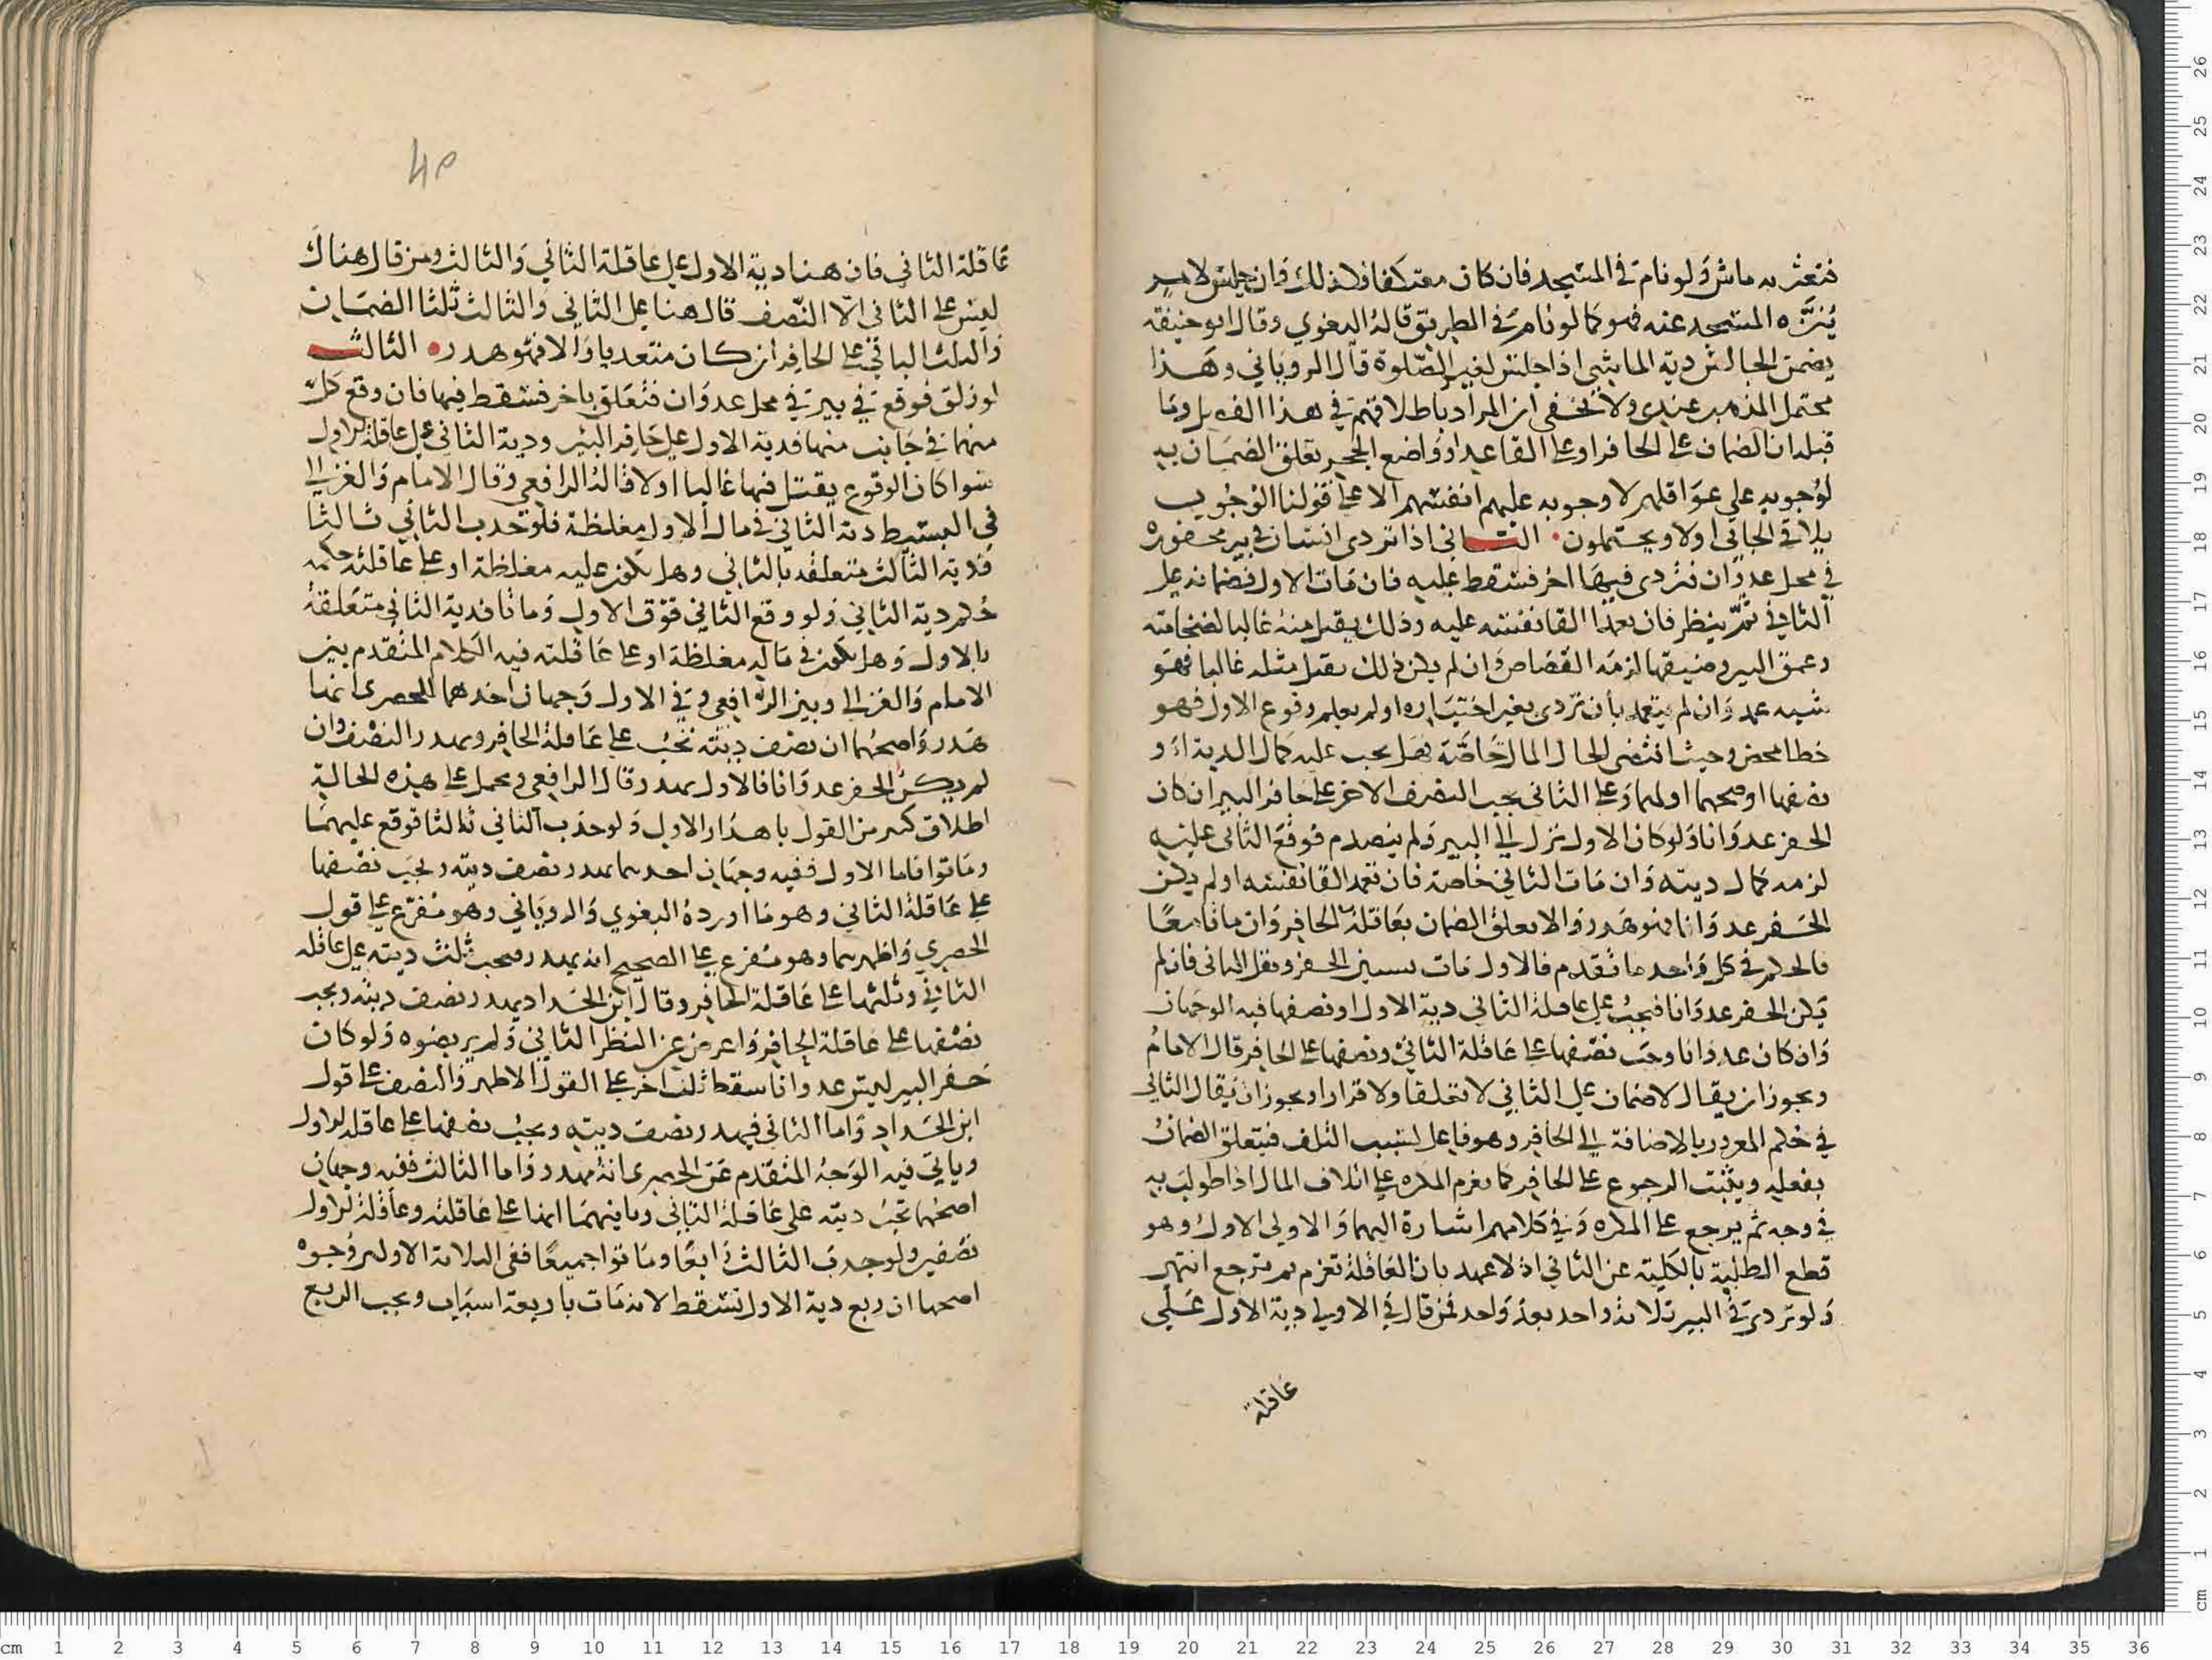 فتعثر به ماش ولو نام في المسجد فان كان معتكفا فلا ذلك وان جلس لامر
ينزه المسجد عنه فهو كما لو نام في الطريق قاله البغوي وقال ابو حنيفة
يضمن الجالس دية الماشي اذا جلس لغير الصلوة قال الروياني وهذا
محتمل للمذهب عندي ولا يخفى ان المراد باطلاقهم في هذا الفصل وما
قبله ان الضمان على الحافر او على القاعد او واضع الحجر تعلق الضمان به
لوجوبه على عواقلهم لا وجوبه عليهم انفسهم الا على قولنا الوجوب
يلاقي الجاني اولا ويحتملون الثاني اذا تردى انسان في بير محفورة
في محل عدوان فتردى فيها اخر فسقط عليه فان مات الاول فضمانه على
الثاني ثم ينظر فان تعمد القا نفسه عليه وذلك يقتل مثله غالبا لضخامته
وعمق البير وضيقها لزمه القصاص وان لم يكن ذلك يقتل مثله غالبا فهو
شبه عمد وان لم يتعمد بأن تردى بغير اختياره او لم يعلم وقوع الاول فهو
خطا محض وحيث اقتضى الحال المال خاصة فهل يجب عليه كمال الدية او
نصفها اوجههما اولهما وعلى الثاني يجب النصف الاخر على حافر البير ان كان
الحفر عدوانا ولو كان الاول نزل الى البير ولم ينصدم فوقع الثاني عليه
لزمه كمال ديته وان مات الثاني خاصة فان تعمد القا نفسه او لم يكن
الحفر عدوانا فهو هدر والا تعلق الضمان بعاقلة الحافر وان ماتا معا
فالحكم في كل واحد ما تقدم فالاول مات بسببين الحفر وثقل الثاني فان لم
يكن الحفر عدوانا فيجب على عاقلة الثاني دية الاول او نصفها فيه الوجهان
وان كان عدوانا وجب نصفها على عاقلة الثاني ونصفها على الحافر قال الامام
ويجوز ان يقال لا ضمان على الثاني لا تعلقا ولا قرارا ويجوز ان يقال الثاني
في حكم المغرور بالاضافة الى الحافر وهو فاعل لسبب التلف فيتعلق الضمان
بفعله ويثبت الرجوع على الحافر كما يغرم المكره على اتلاف المال اذا طولب به
في وجه ثم يرجع على المكره وفي كلامهم اشارة اليهما والاولى الاول وهو
قطع الطلبة بالكلية عن الثاني اذ لا عهد بان العاقلة تغرم ثم ترجع انتهى
ولو تردى في البير ثلاثة واحد بعد واحد فمن قال في الاولى دية الاول على
عاقلة
عاقلة الثاني فان هنا دية الاول على عاقلة الثاني والثالث ومن قال هناك
ليس على الثاني الا النصف قال هنا على الثاني والثالث ثلثا الضمان
والثلث الباقي على الحافر ان كان متعديا والا فهو هدر الثالث
لو زلق فوقع في بير في محل عدوان فتعلق باخر فسقط فيها فان وقع كل
منهما في جانب منها فدية الاول على حافر البير ودية الثاني على عاقلة الاول
سوا كان الوقوع يقتل فيها غالبا او لا قاله الرافعي وقال الامام والغزالي
في البسيط دية الثاني في مال الاول مغلظة فلو جذب الثاني ثالثا
فدية الثالث متعلقة بالثاني وهل تكون عليه مغلظة او على عاقلته حكمه
حكم دية الثاني ولو وقع الثاني فوق الاول وماتا فدية الثاني متعلقة
بالاول وهل تكون في ماله مغلظة او على عاقلته فيه الكلام المتقدم بين
الامام والغزالي وبين الرافعي وفي الاول وجهان احدهما للحصري انها
هدر واصحهما ان نصف ديته تجب على عاقلة الحافر ويهدر النصف وان
لم يكن الحفر عدوانا فالاول يهدر قال الرافعي ويحمل على هذه الحالة
اطلاق كثير من القول باهدار الاول ولو جذب الثاني ثالثا فوقع عليهما
وماتوا فاما الاول ففيه وجهان احدهما يهدر نصف ديته ويجب نصفها
على عاقلة الثاني وهو ما اورده البغوي والروياني وهو مفرع على قول
الحصري واظهرهما وهو مفرع على الصحيح انه يهدر ويجب ثلث ديته على عاقلة
الثاني وثلثها على عاقلة الحافر وقال ابن الحداد يهدر نصف ديته ويجب
نصفها على عاقلة الحافر واعرض عن النظر الثاني ولم يرتضوه ولو كان
حفر البير ليس عدوانا سقط ثلث اخر على القول الاظهر والنصف على قول
ابن الحداد واما الثاني فيهدر نصف ديته ويجب نصفها على عاقلة الاول
وياتي فيه الوجه المتقدم عن الحصري انه يهدر واما الثالث ففيه وجهان
اصحهما تجب ديته على عاقلة الثاني وثانيهما انها على عاقلته وعاقلة الاول
نصفين ولو جذب الثالث رابعا وماتوا جميعا ففي الثلاثة الاول وجوه
اصحها ان ربع دية الاول تسقط لانه مات باربعة اسباب ويجب الربع